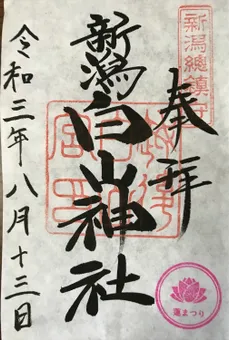 新潟總鎮守
奉拝
新潟白山神社
令和三年八月十三日
蓮まつり